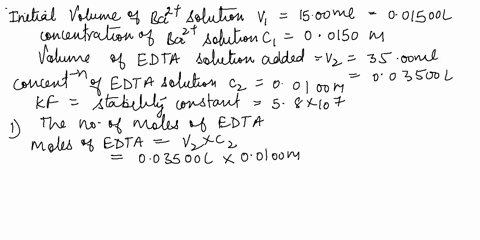 Initial Volume of Ba²⁺ solution V₁ = 15.00ml = 0.01500L
concentration of Ba²⁺ solution C₁ = 0.0150 M
Volume of EDTA solution added = V₂ = 35.00ml
= 0.03500L
concentⁿ of EDTA solution C₂ = 0.0100M
KF = stability constant = 5.8×10⁷
1) The no. of moles of EDTA
Moles of EDTA = V₂×C₂
= 0.03500L × 0.0100M